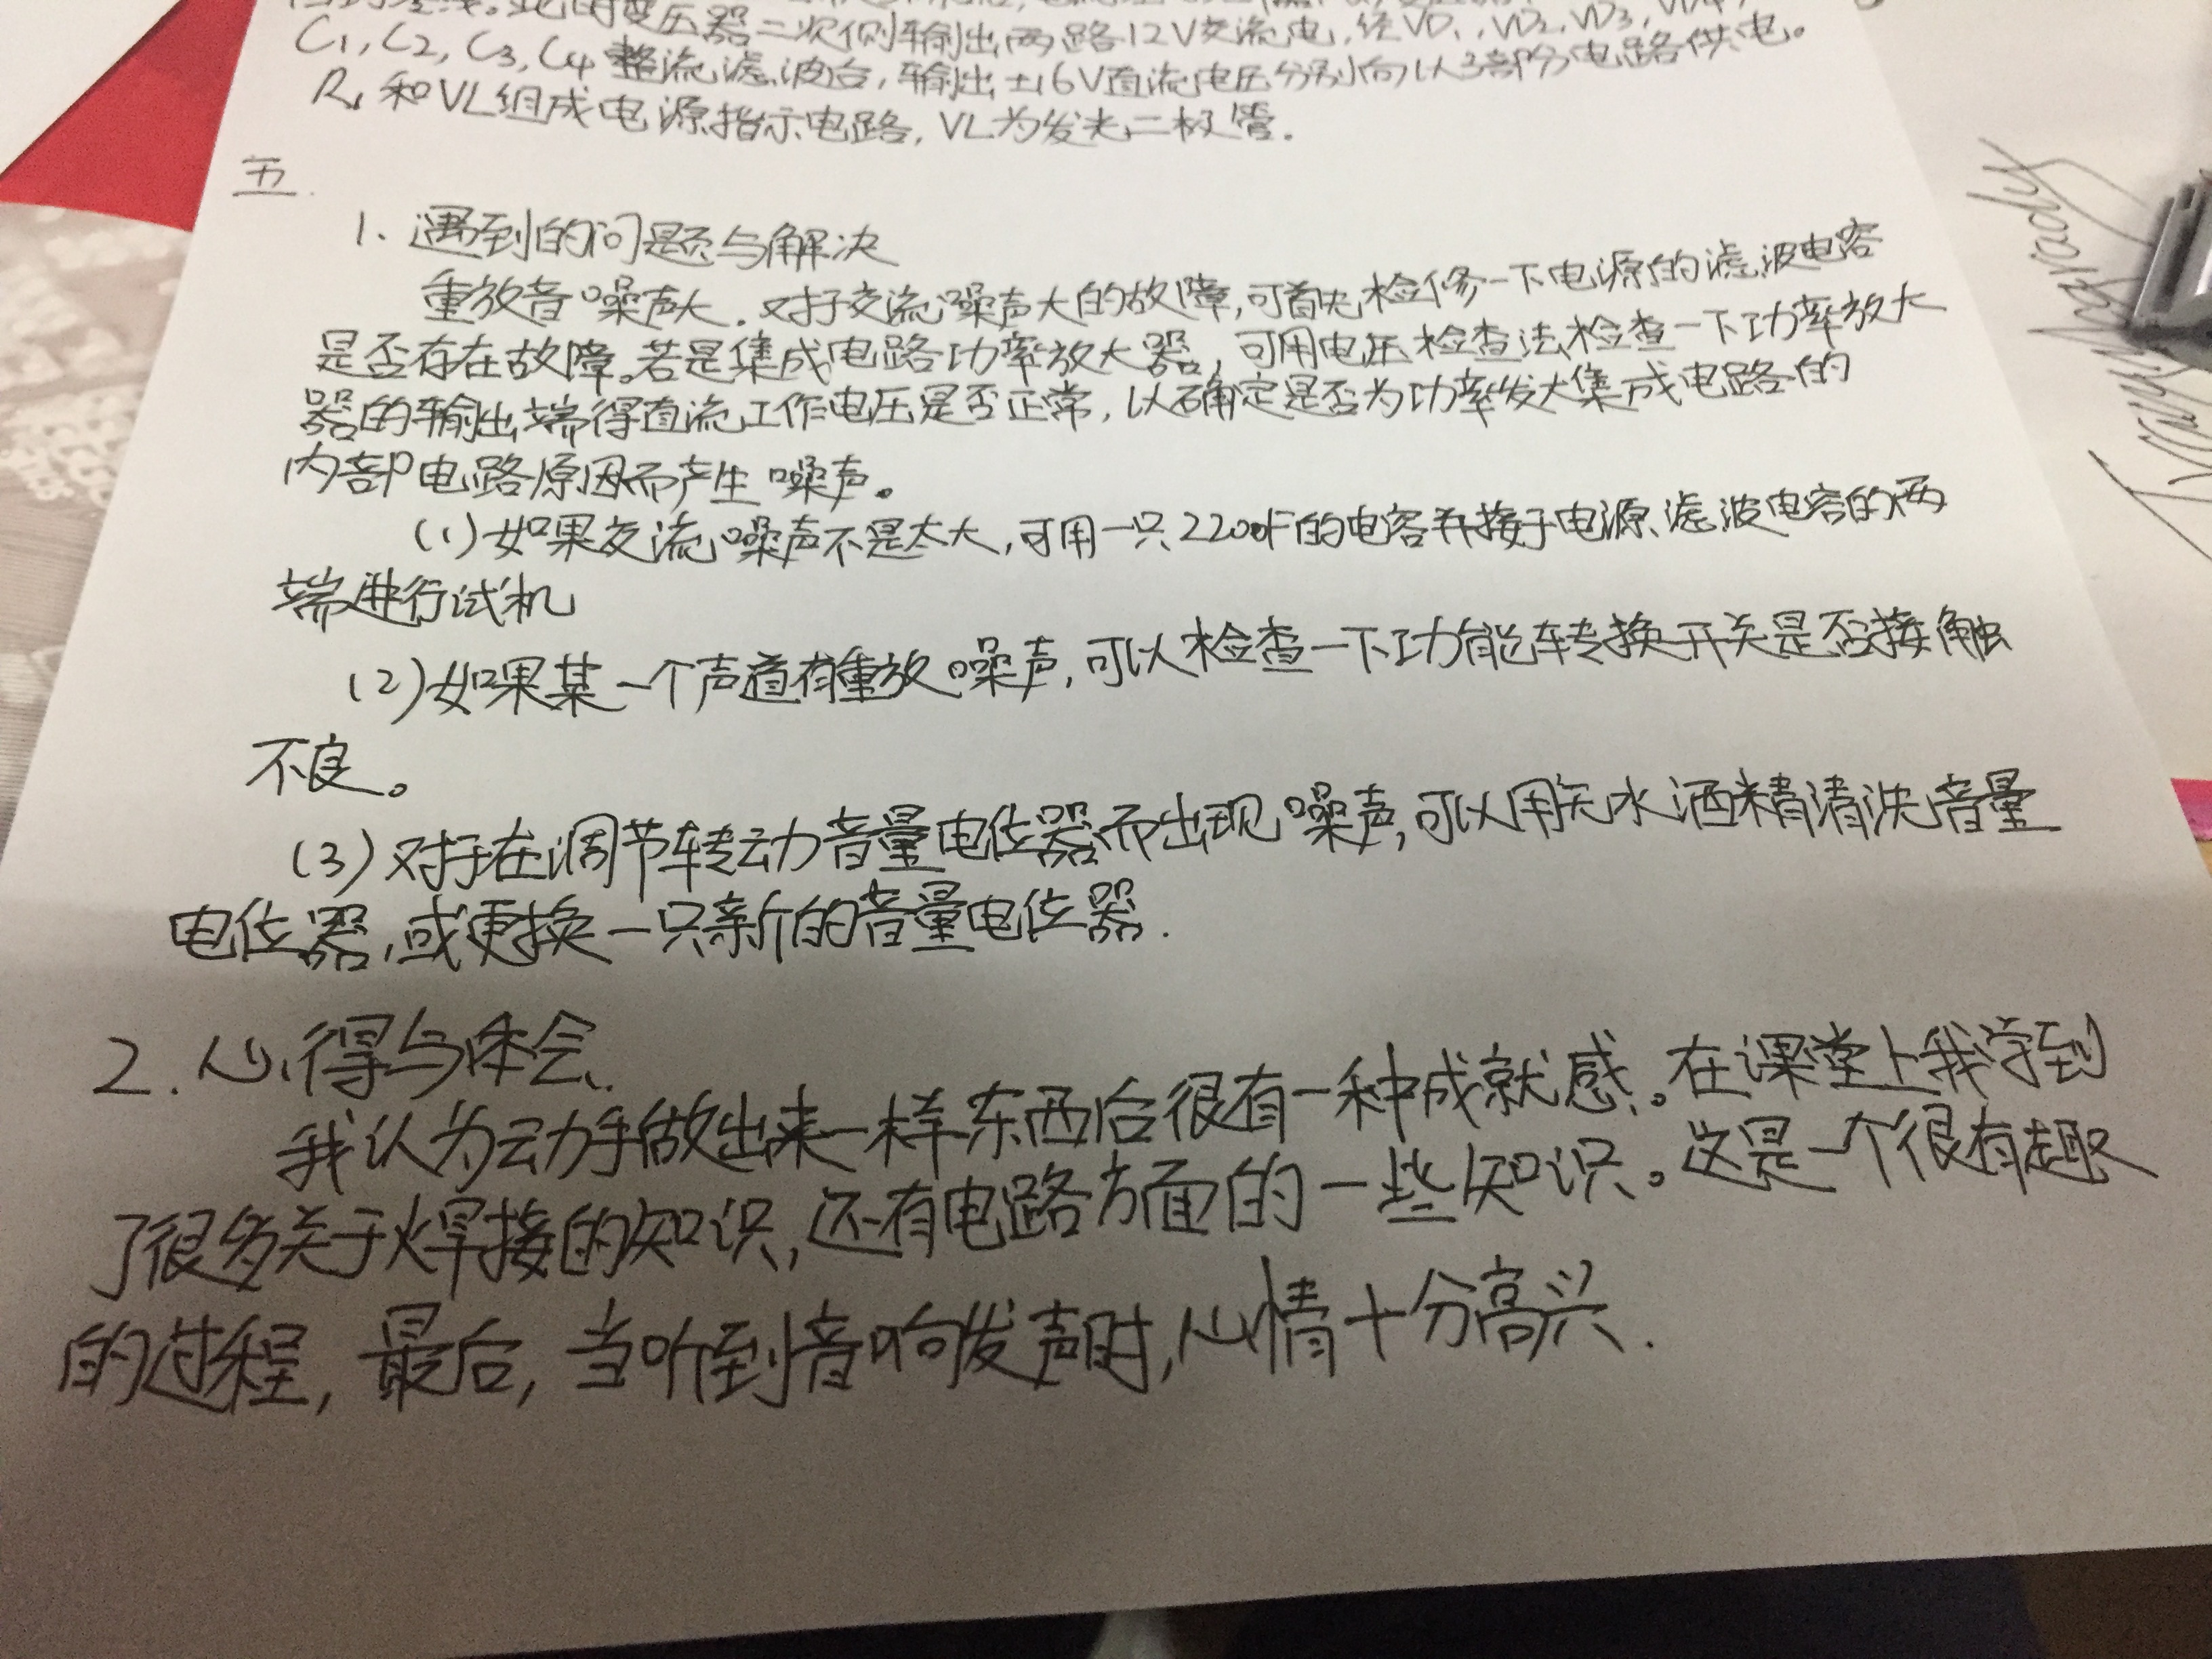 此时变压器二次侧输出两路12V交流电,经VD1,VD2,VD3,
C1,C2,C3,C4整流滤波后,输出±16V直流电压分别向以3部分电路供电。
R1和VL组成电源指示电路,VL为发光二极管.
五.
1、遇到的问题与解决
重放音噪声大.对于交流噪声大的故障,可首先检修一下电源的滤波电容
是否存在故障。若是集成电路功率放大器,可用电压检查法检查一下功率放大
器的输出端得直流工作电压是否正常,以确定是否为功率发大集成电路的
内部电路原因而产生噪声。
(1)如果交流噪声不是太大,可用一只的电容并接于电源滤波电容的两
端进行试机
(2)如果某一个声道有重放噪声,可以检查一下功能转换开关是否接触
不良。
(3)对于在调节转动音量电位器而出现噪声,可以用无水酒精清洗音量
电位器,或更换一只新的音量电位器.
2.心得与体会.
我认为动手做出来一样东西后很有一种成就感。在课堂上我学到
了很多关于焊接的知识,还有电路方面的一些知识。这是一个很有趣
的过程,最后,当听到音响发声时,心情十分高兴.